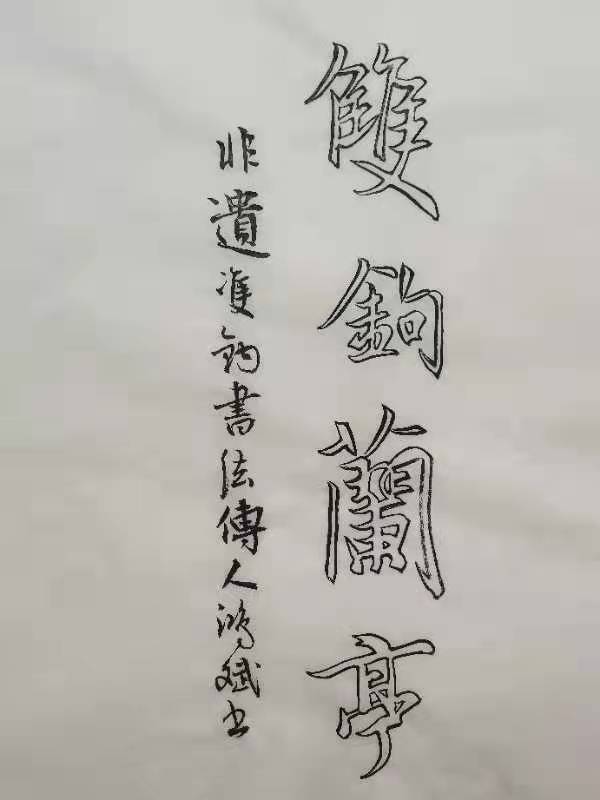 雙鉤蘭亭
非遺雙鈎書法傳人鴻斌书